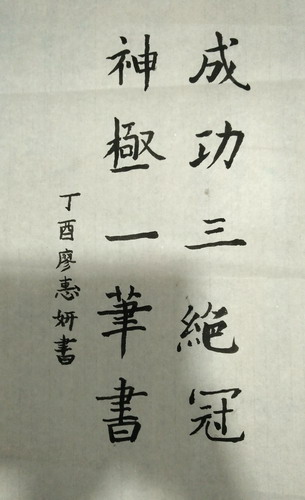 成功三絶冠
神極一筆書
丁酉廖惠妍書